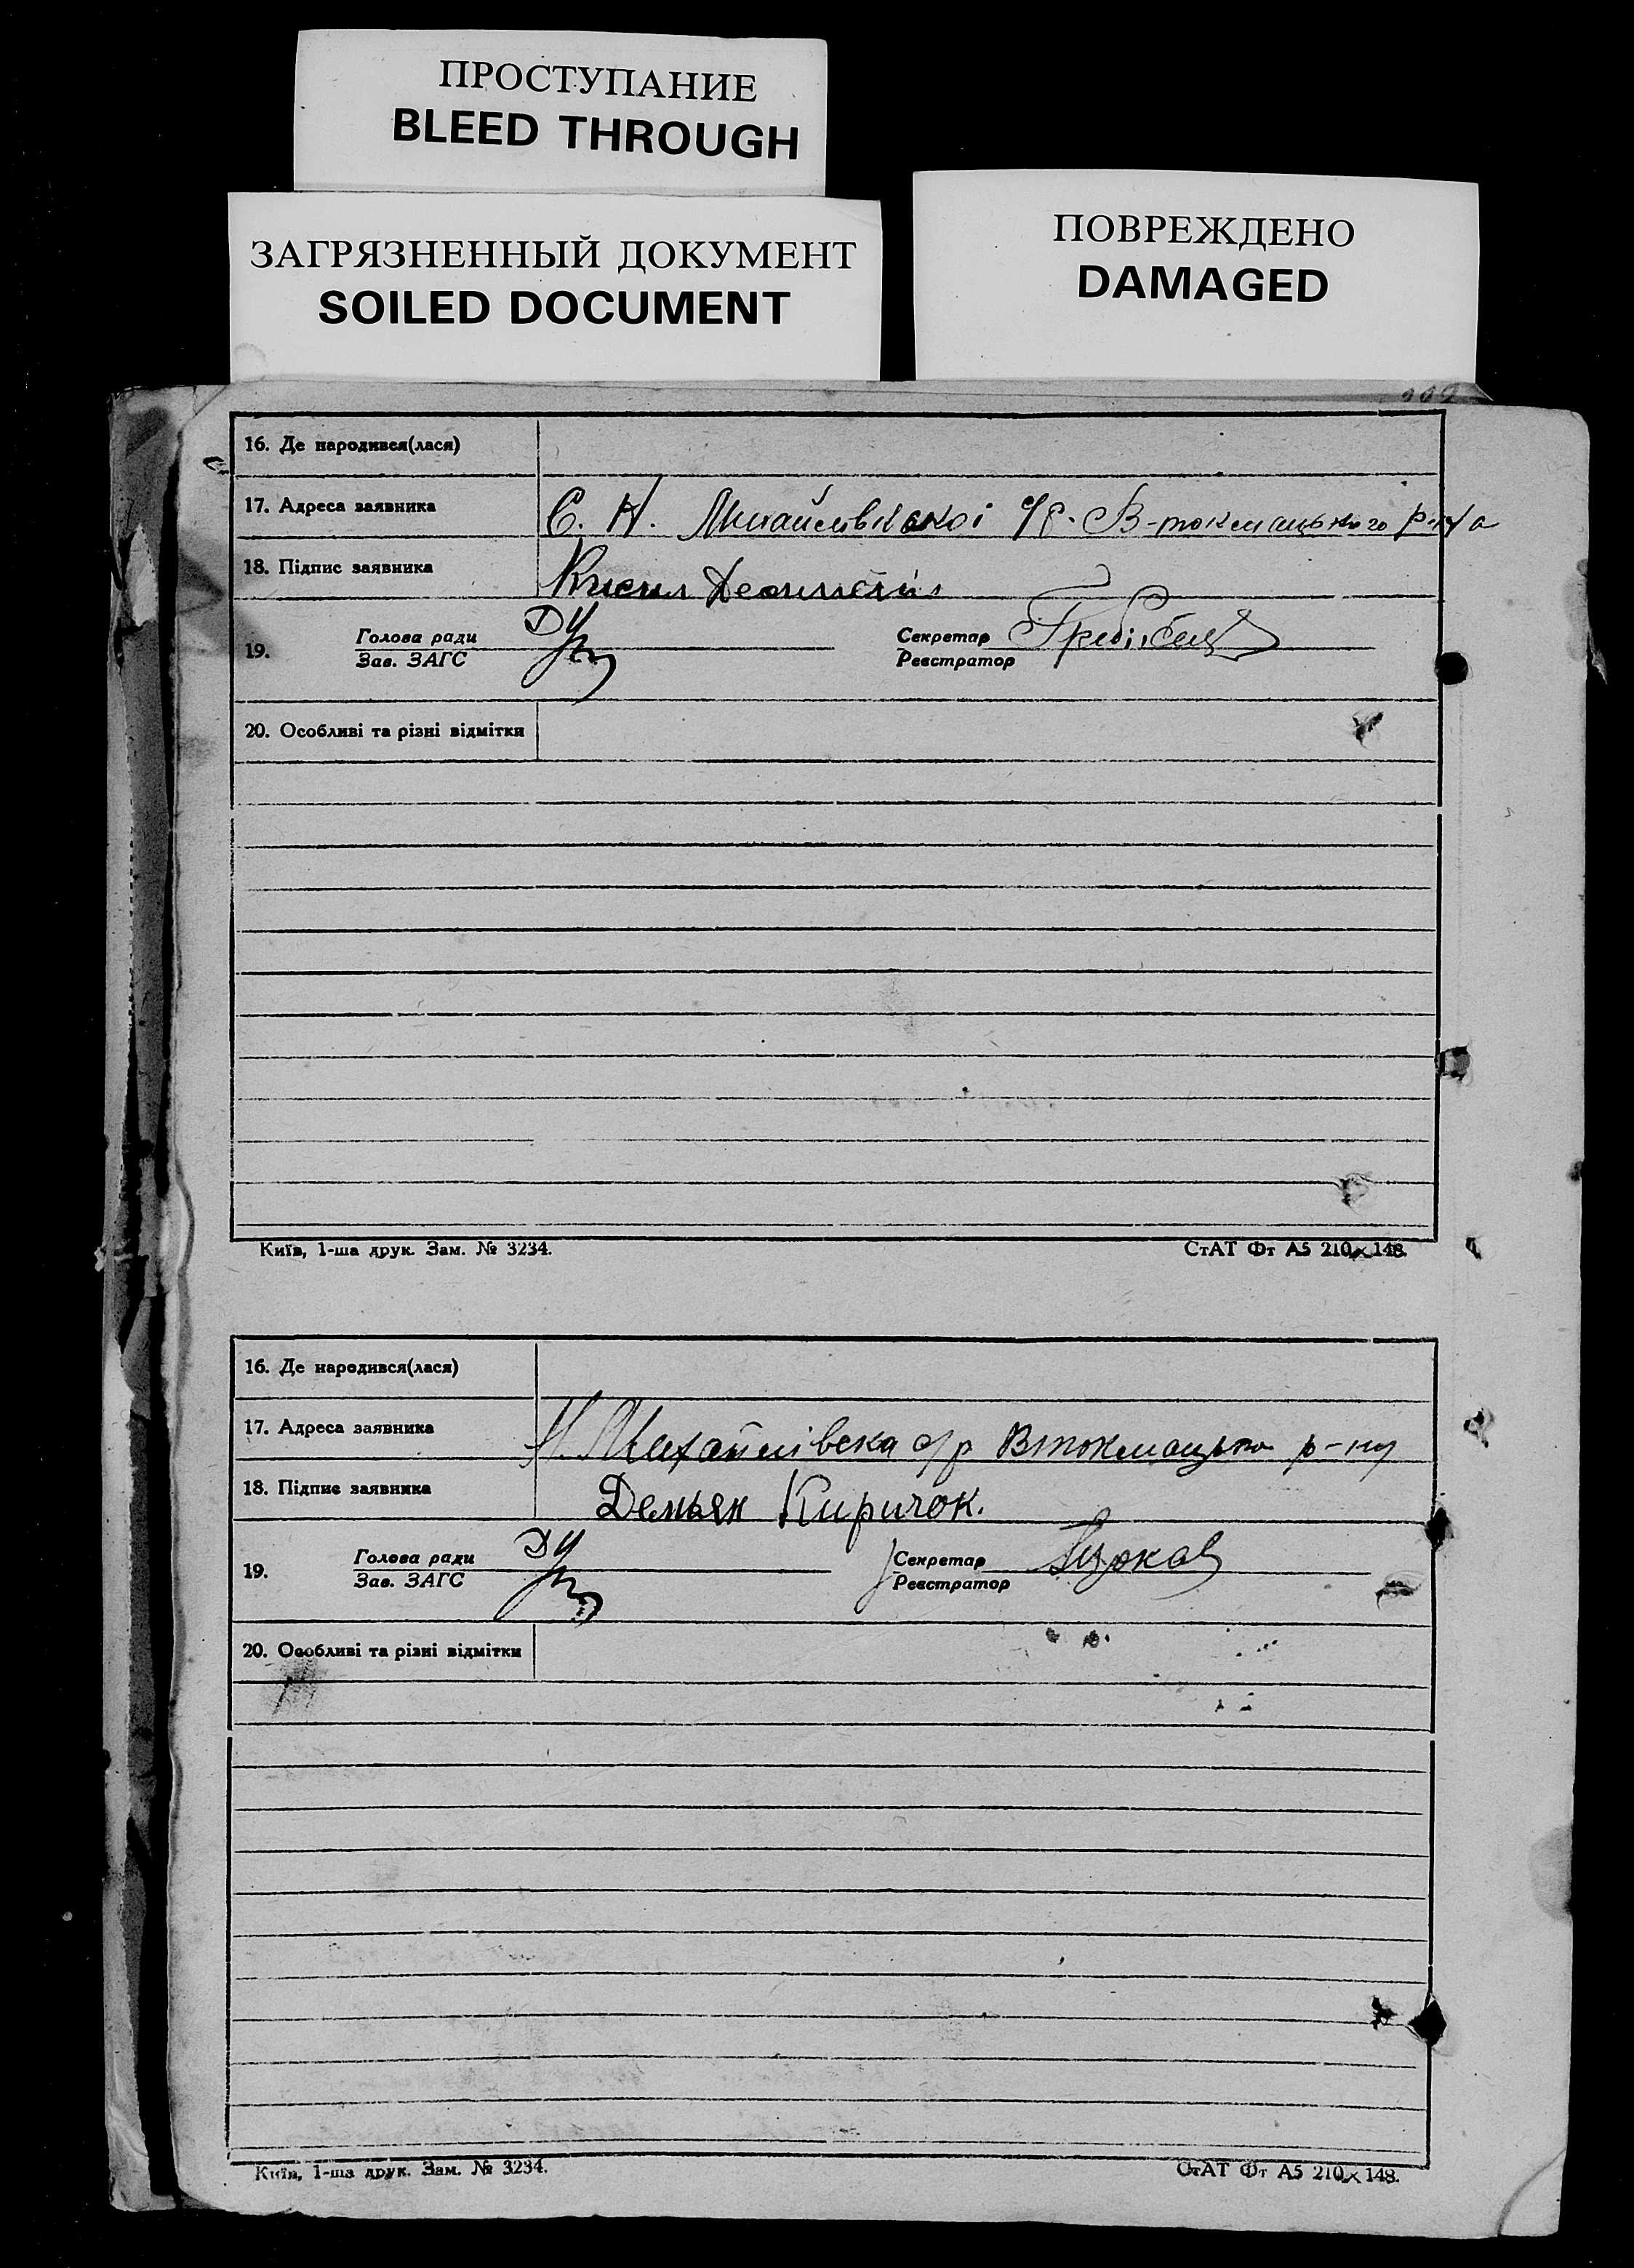 ПРОСТУПАНИЕ
BLEED THROUGH
ЗАГРЯЗНЕННЫЙ ДОКУМЕНТ
SOILED DOCUMENT
ПОВРЕЖДЕНО
DAMAGED
16. Де народився(лася)
17. Адреса заявника С. Н. Михайлівської с/р. В-токмацького р-на
18. Підпис заявника Кисил
19. Голова ради Секретар
Зав. ЗАГС Реєстратор
20. Особливі та різні відмітки
Київ, 1-ша друк. Зам. № 3234. СтАТ Фт А5 210×148.
16. Де народився(лася)
17. Адреса заявника Н. Михайлівська с/р Втокмацько р-ну
18. Підпис заявника Демьян Киричок.
19. Голова ради Секретар
Зав. ЗАГС Реєстратор
20. Особливі та різні відмітки
Київ, 1-ша друк. Зам. № 3234. СтАТ Фт А5 210×148.